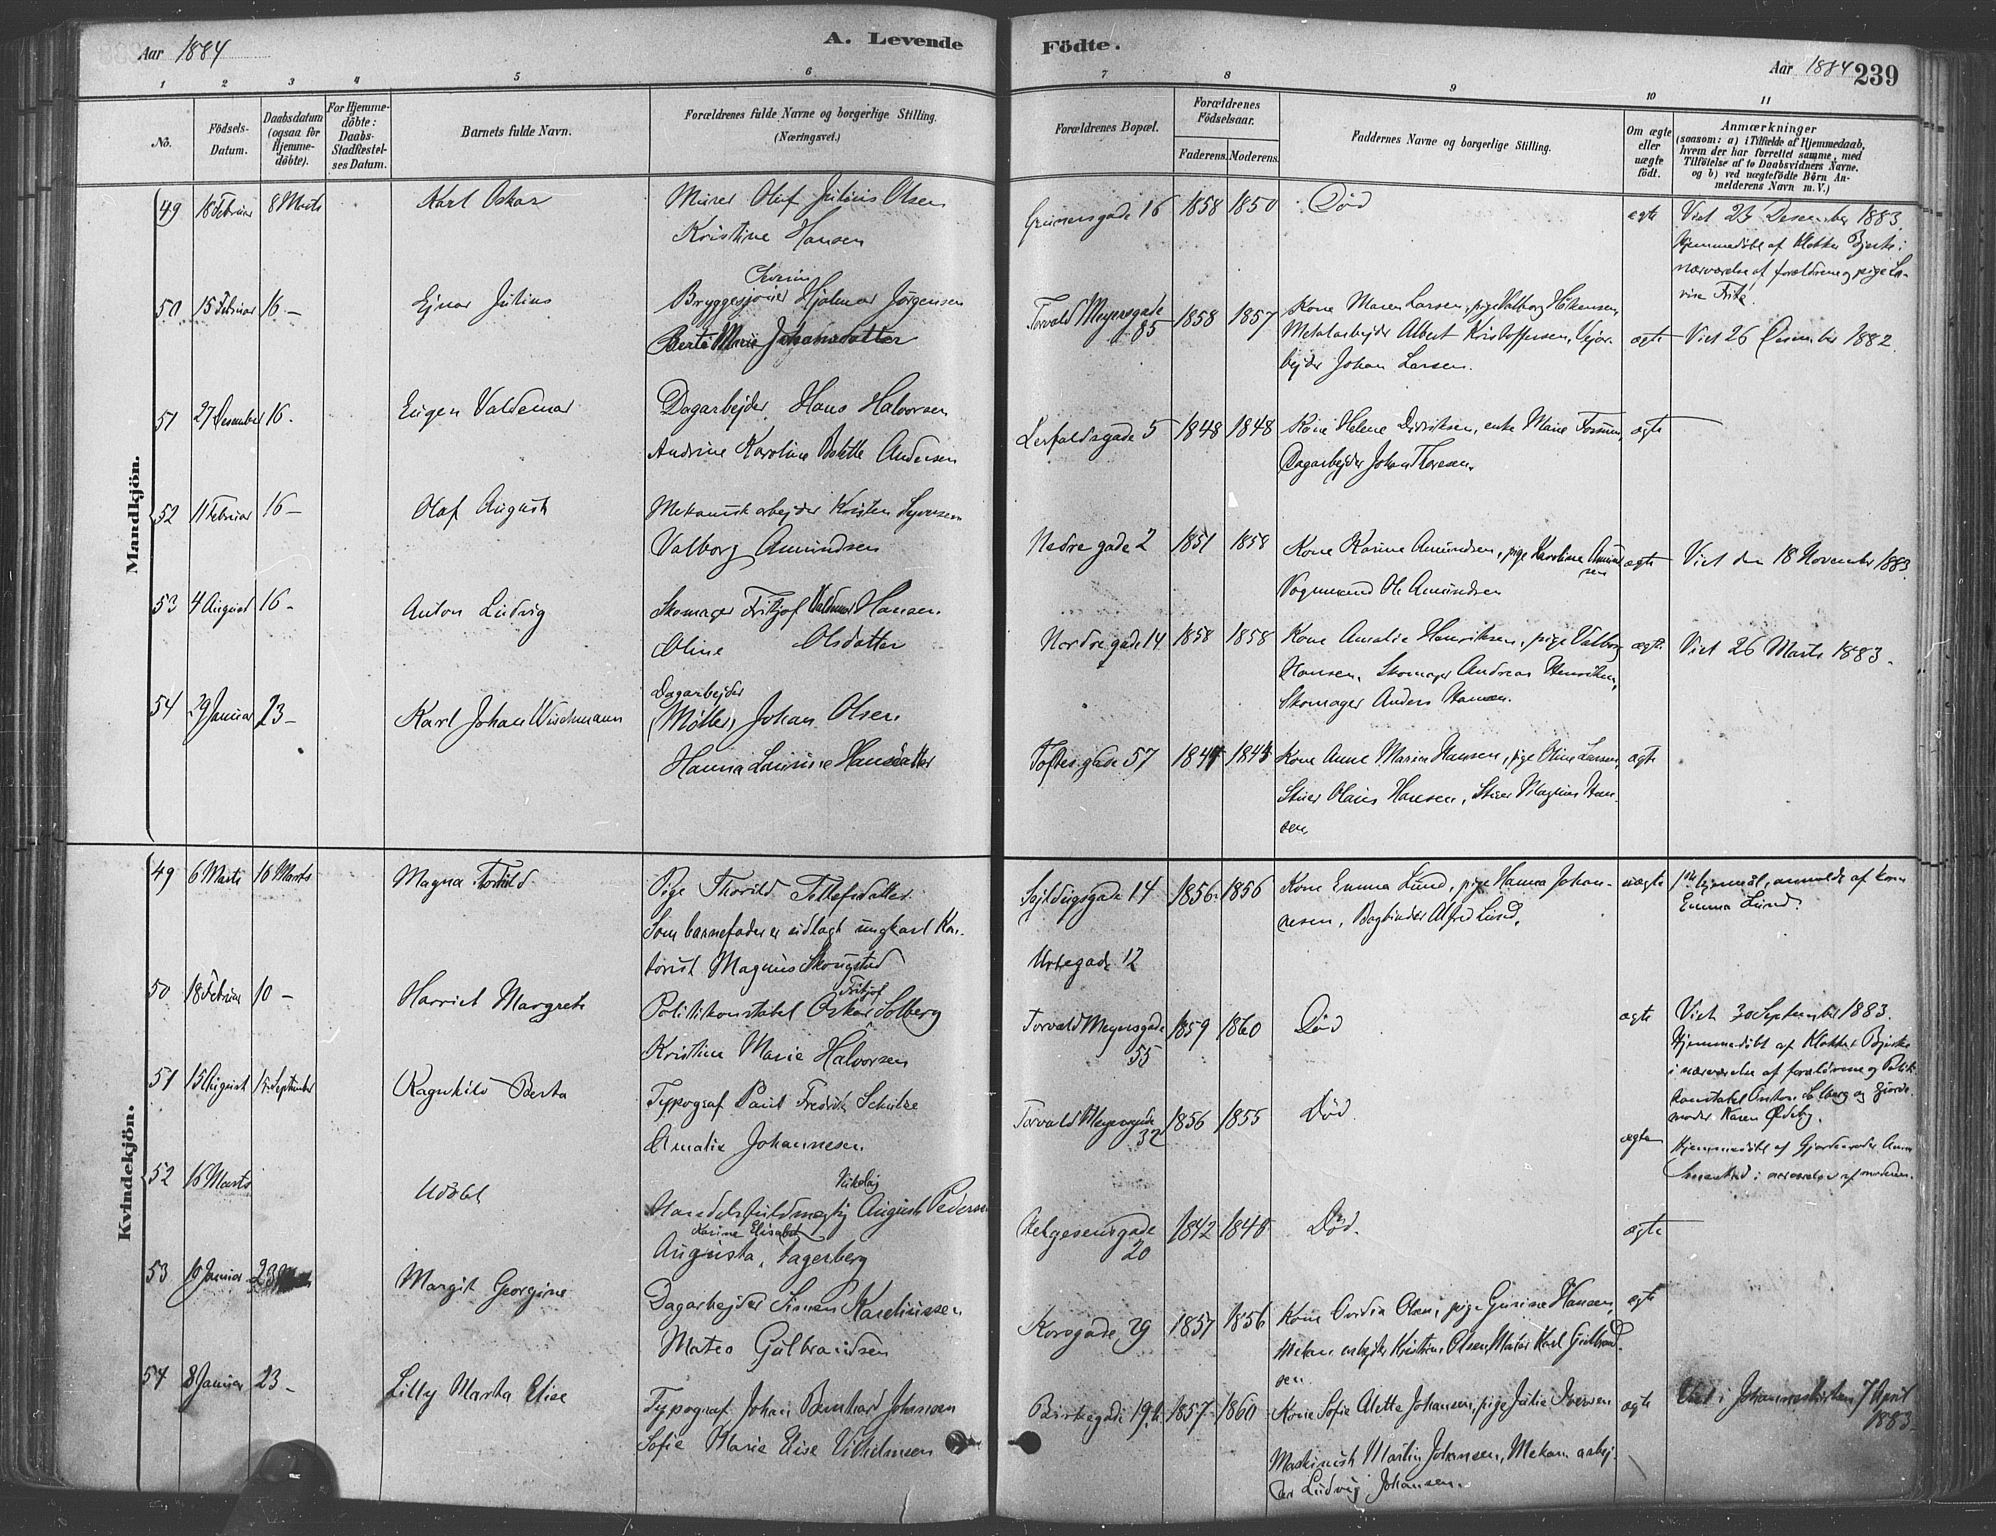 Aar 1884
A. Levende
Födte.
Aar 1884
239
1
2
3
4
5
6
7
8
9
10
11
No.
Födsels-
Datum.
Daabsdatum
(ogsaa for
Hjemme-
döbte).
For Hjemme-
döbte:
Daabs-
Stadfæstel-
ses Datum.
Barnets fulde Navn.
Forældrenes fulde Navne og borgerlige Stilling.
(Næringsvei.)
Forældrenes Bopæl.
Forældrenes
Födselsaar.
Faderens.
Moderens.
Faddernes Navne og borgerlige Stilling.
Om ægte
eller
uægte
födt.
Anmærkninger
(saasom: a) i Tilfælde af Hjemmedaab,
hvem der har forrettet samme, med
Tilföielse af to Daabsvidners Navne.
og b) ved uægtefödte Börn An-
melderens Navn m. V.)
Mandkjön.
49 18 Februar 8 Marts Karl Oskar Murer Oluf Julius Olsen
Kristine Hansen
Grünersgade 16 1858 1850 Död ægte Viet 23 Desember 1883.
Hjemmedöbt af Klokker Bjerke i
nærværelse af forældrene og pige
50 15 Februar 16 – Ejnar Julius Bryggesjouer Hjalmar Jörgensen
Berte Marie Johansdatter
Torvald Meyersgade
85 1858 1857 Kone Maren Larsen, pige Valborg Håkensen,
Metalarbejder Albert Kristoffersen,
bejder Johan Larsen.
ægte Viet 26 Desember 1882.
51 27 Desember 16. Eugen Valdemar Dagarbejder Hans Halvorsen
Andrine Karoline Bolette Andersen
5 1848 1848 Kone Helene Didriksen, enke Marie
Dagarbejder Johan Thoresen.
ægte –
52 11 Februar 16 – Olaf August Mekanisk arbejder Kristen Syversen
Valborg Amundsen
Nedre gade 2 1851 1858 Kone Karine Amundsen, pige Karoline Amund
sen
Vognmand Ole Amundsen
ægte Viet den 18 November 1883.
53 4 August 16 – Anton Ludvig Skomager Fritjof Valdemar Hansen
Oline Olsdatter
Nordre gade 14 1858 1858 Kone Amalie Henriksen, pige Valborg
Hansen, Skomager Andreas Henriksen,
Skomager Anders Hansen.
ægte Viet 26 Marts 1883.
54 29 Januar 23 – Karl Johan Wischmann Dagarbejder
(Möller) Johan Olsen
Hanna Laurine Hansdatter
Toftesgade 57 1844 1844 Kone Anne Marie Hansen, pige Oline Larsen,
Olaus Hansen, Magnus Han-
sen
ægte
Kvindekjön.
49 6 Marts 16 Marts Magna Torhild Pige Thorild Tollefsdatter
Som barnefader er udlagt ungkarl Kon-
torist Magnus Skougstad
14
Urtegade 12
1856 1856 Kone Emma Lund, pige Hanna Johan-
nesen, Bogbinder Alfred Lund.
uægte anmeldt af kone
Emma Lund.
50 18 Februar 10 – Harriet Margrete Fritjof
Politikonstabel Oskar Solberg
Kristine Marie Halvorsen
Torvald Meyersgade
55 1859 1860 Död ægte Viet 30 September 1883.
Hjemmedöbt af Klokker Bjerke
i nærværelse af forældrene og Politi-
konstabel Anton Solberg og gjorde-
moder Karen Ödeby.
51 15 August 15 September Ragnhild Berta Typograf Paul Fredrik Schulze
Amalie Johannesen
Torvald Meyersgade
32 1856 1855 Död. ægte
Hjemmedöbt af Gjordemoder Anna
i nærværelse af moderen.
52 16 Marts Udöbt Nikolaj
Handelsfuldmægtig August Pedersen
Karine Elisabet
Augusta Fagerberg
Helgesensgade
20 1842 1848 Död. ægte
53 10 Januar 23 Margit Georgine Dagarbejder Simen Karelinssen
Matea Gulbrandsen
Korsgade 29 1857 1856 Kone Ovidia Olsen, pige Gurine Hansen,
Mekan arbejder Kristian Olsen, Maler Karl Gulbrand-
sen
ægte
54 8 Januar 23 – Lilly Marta Elise Typograf Johan Bernhard Johansen
Sofie Marie Elise Vilhelmsen
Birkegade 19 b 1857 1860 Kone Sofie Alette Johansen, pige Julie Iversen
Maskinist Martin Johansen, Mekan arbej-
der Ludvig Johansen.
ægte Viet i Johanneskirken 7 April
1883.